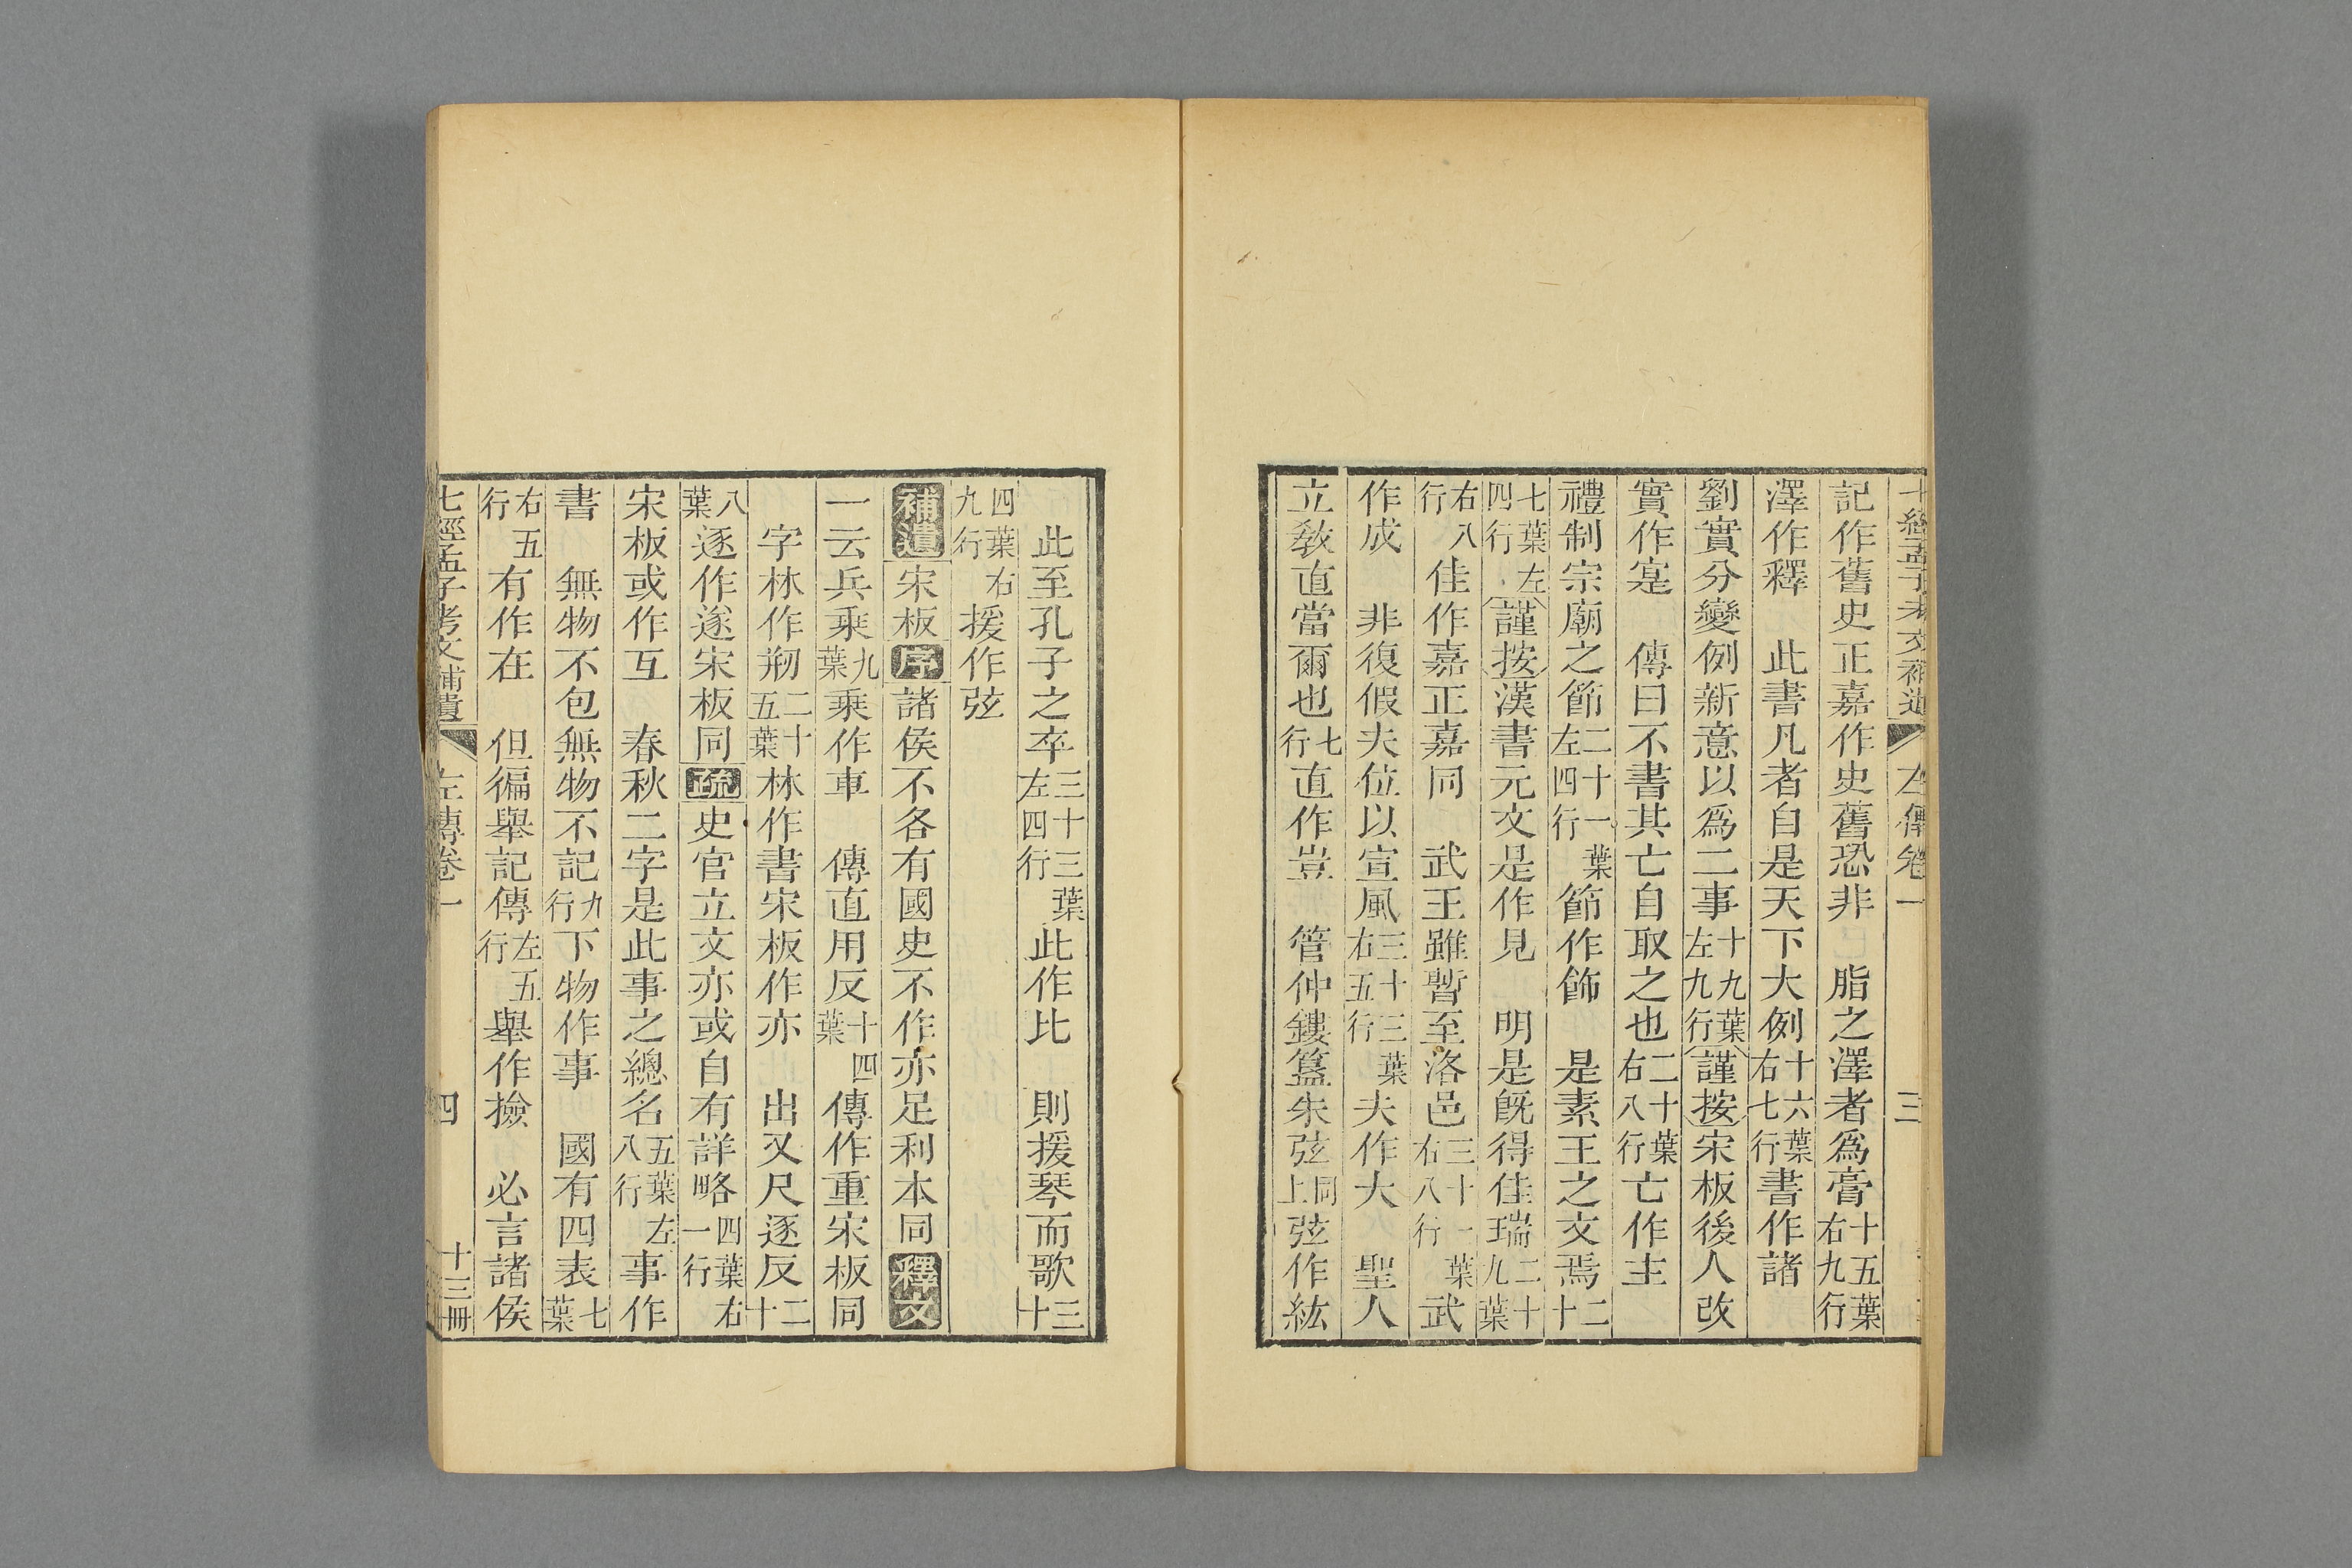 七經孟子考文補遺 左傳卷一 三
記作舊史正嘉作史舊恐非 脂之澤者爲膏十五葉右九行
澤作釋 此書凡者自是天下大例十六葉右七行書作諸
劉實分變例新意以爲二事十九葉左九行謹按宋板後人改
實作寔 傳曰不書其亡自取之也二十葉右八行亡作主
禮制宗廟之節二十一葉左四行節作飾 是素王之文焉二十
七葉左四行謹按漢書元文是作見 明是旣得佳瑞二十九葉
右八行佳作嘉正嘉同 武王雖暫至洛邑三十一葉右八行武
作成 非復假夫位以宣風三十三葉右五行夫作大 聖人
立敎直當爾也七行直作豈 管仲鏤簋朱弦同上弦作紘
此至孔子之卒三十三葉左四行此作比 則援琴而歌三十
四葉右九行援作弦
補遺宋板序諸侯不各有國史不作亦足利本同釋文
一云兵乘九葉乘作車 傳直用反十四葉傳作重宋板同
字林作剙二十五葉林作書宋板作亦 出又尺逐反二十
八葉逐作遂宋板同疏史官立文亦或自有詳略四葉右一行
宋板或作互 春秋二字是此事之總名五葉左八行事作
書 無物不包無物不記九行下物作事 國有四表七葉
右五行有作在 但徧舉記傳左五行舉作撿 必言諸侯
七經孟子考文補遺 左傳卷一 四 十三冊